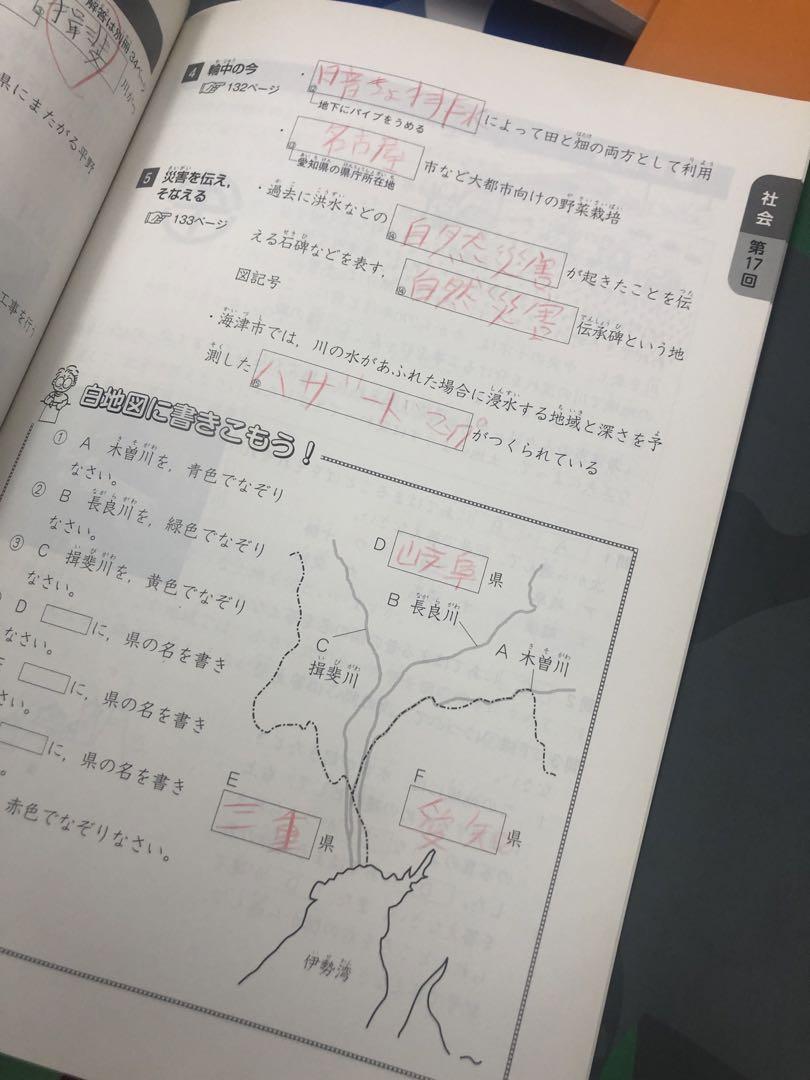 解答は別冊34ページ
揖斐
川がつ
県にまたがる平野
工事を行う
4 輪中の今
132ページ
・暗きょ排水によって田と畑の両方として利用
⑫
地下にパイプをうめる
・名古屋市など大都市向けの野菜栽培
⑬
愛知県の県庁所在地
5 災害を伝え,
そなえる
133ページ
・過去に洪水などの自然災害が起きたことを伝
⑭
える石碑などを表す,自然災害伝承碑という地
⑭
図記号
・海津市では,川の水があふれた場合に浸水する地域と深さを予
測したハザードマップがつくられている
⑮
社会
第17回
白地図に書きこもう!
① A 木曽川を,青色でなぞり
なさい。
② B 長良川を,緑色でなぞり
なさい。
③ C 揖斐川を,黄色でなぞり
なさい。
D に,県の名を書き
なさい。
に,県の名を書き
さい。
に,県の名を書き
。
赤色でなぞりなさい。
D 岐阜県
B 長良川
C
揖斐川
A 木曽川
E
三重県
F
愛知県
伊勢湾